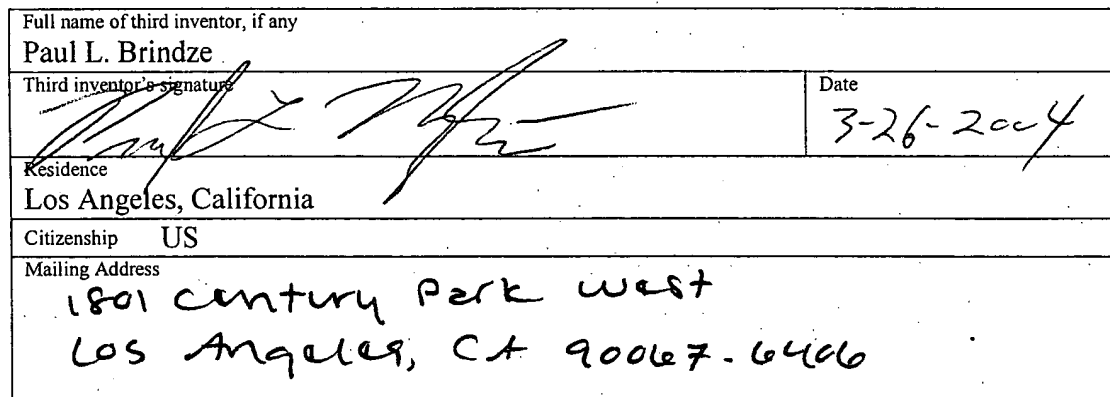 Full name of third inventor, if any
Paul L. Brindze
Third inventor's signature
Date
3-26-2004
Residence
Los Angeles, California
Citizenship US
Mailing Address
1801 Century Park West
Los Angeles, CA 90067-6406